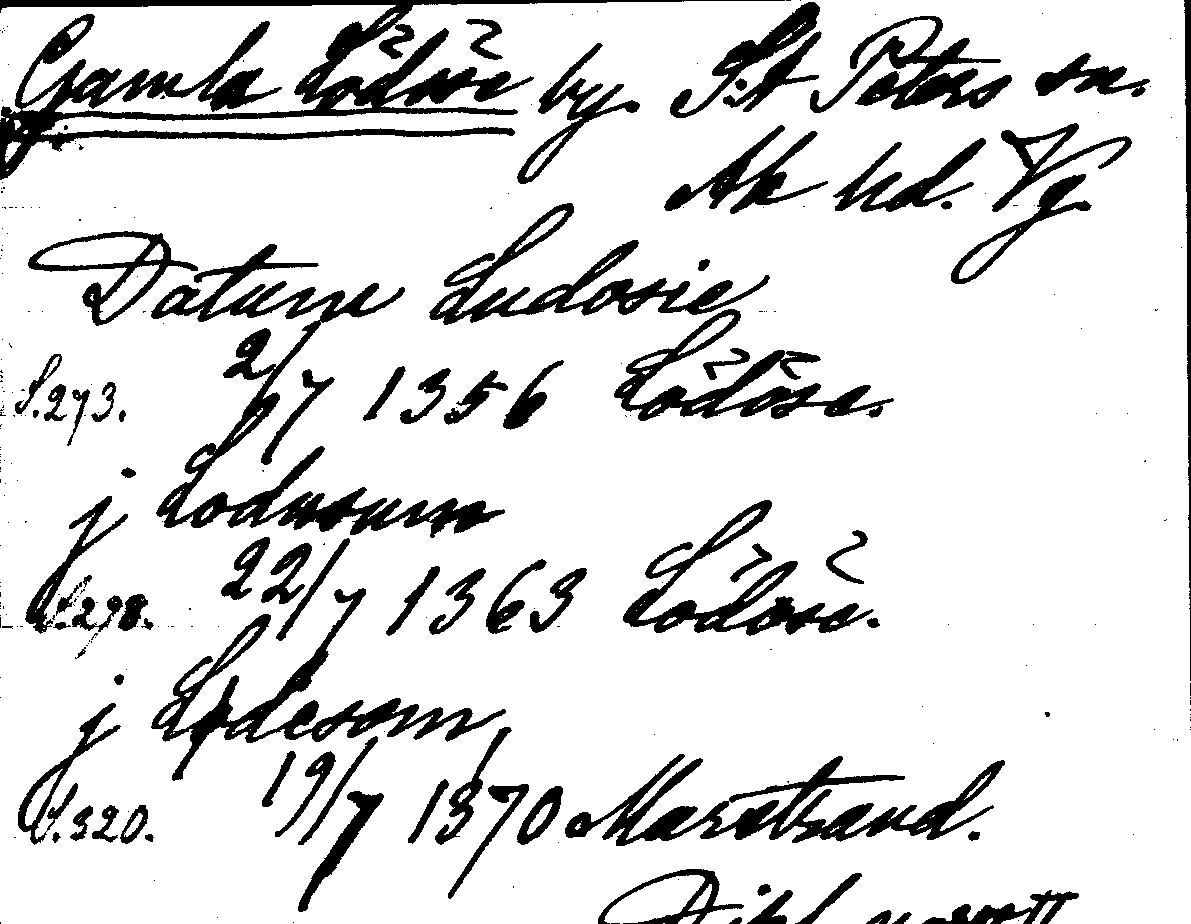 Gamla Lödöse by. S:t Peters sn.
Ale hd. Vg.
Datum Ludosie
S.273. 2/7 1356 Lödöse.
j Lodusum
S.278. 22/7 1363 Lödöse.
j Lødesom
S.320. 19/7 1370 Marstrand.
Dipl. norvett